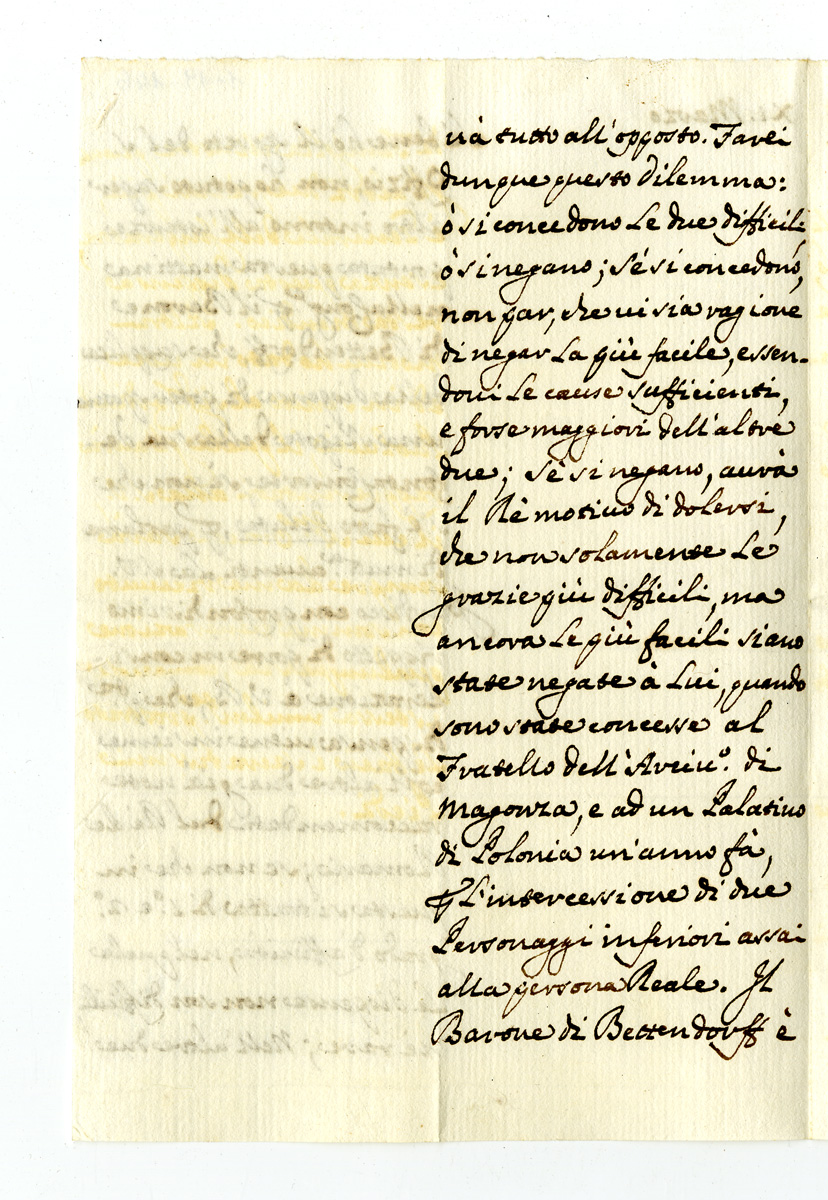 và tutto all'opposto. Farei
dunque questo Dilemma:
ò si concedono le due difficili,
ò si negano; sé si concedono,
non par, che ui sia ragione
di negar la più facile, essen-
doui le cause sufficienti,
e forse maggiori dell'altre
due; sé si negano, aurà
il Rè motiuo di dolersi,
che non solamente le
grazie più difficili, ma
ancora le più facili siano
state negate à Lui, quando
sono state concesse al
Fratello dell'Arciu.º di
Magonza, e ad un Palatino
di Polonia un'anno fà,
ꝑ l'intercessione di due
Personaggi inferiori assai
alla persona Reale. Il
Barone di Bettendorff è